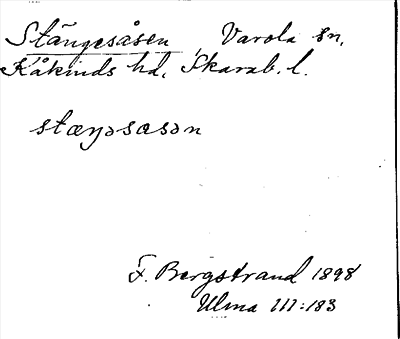 Stängesåsen, Varola sn,
Kåkinds hd, Skarab. l.
stæŋəsåsən
F. Bergstrand 1898
Ulma 111:183